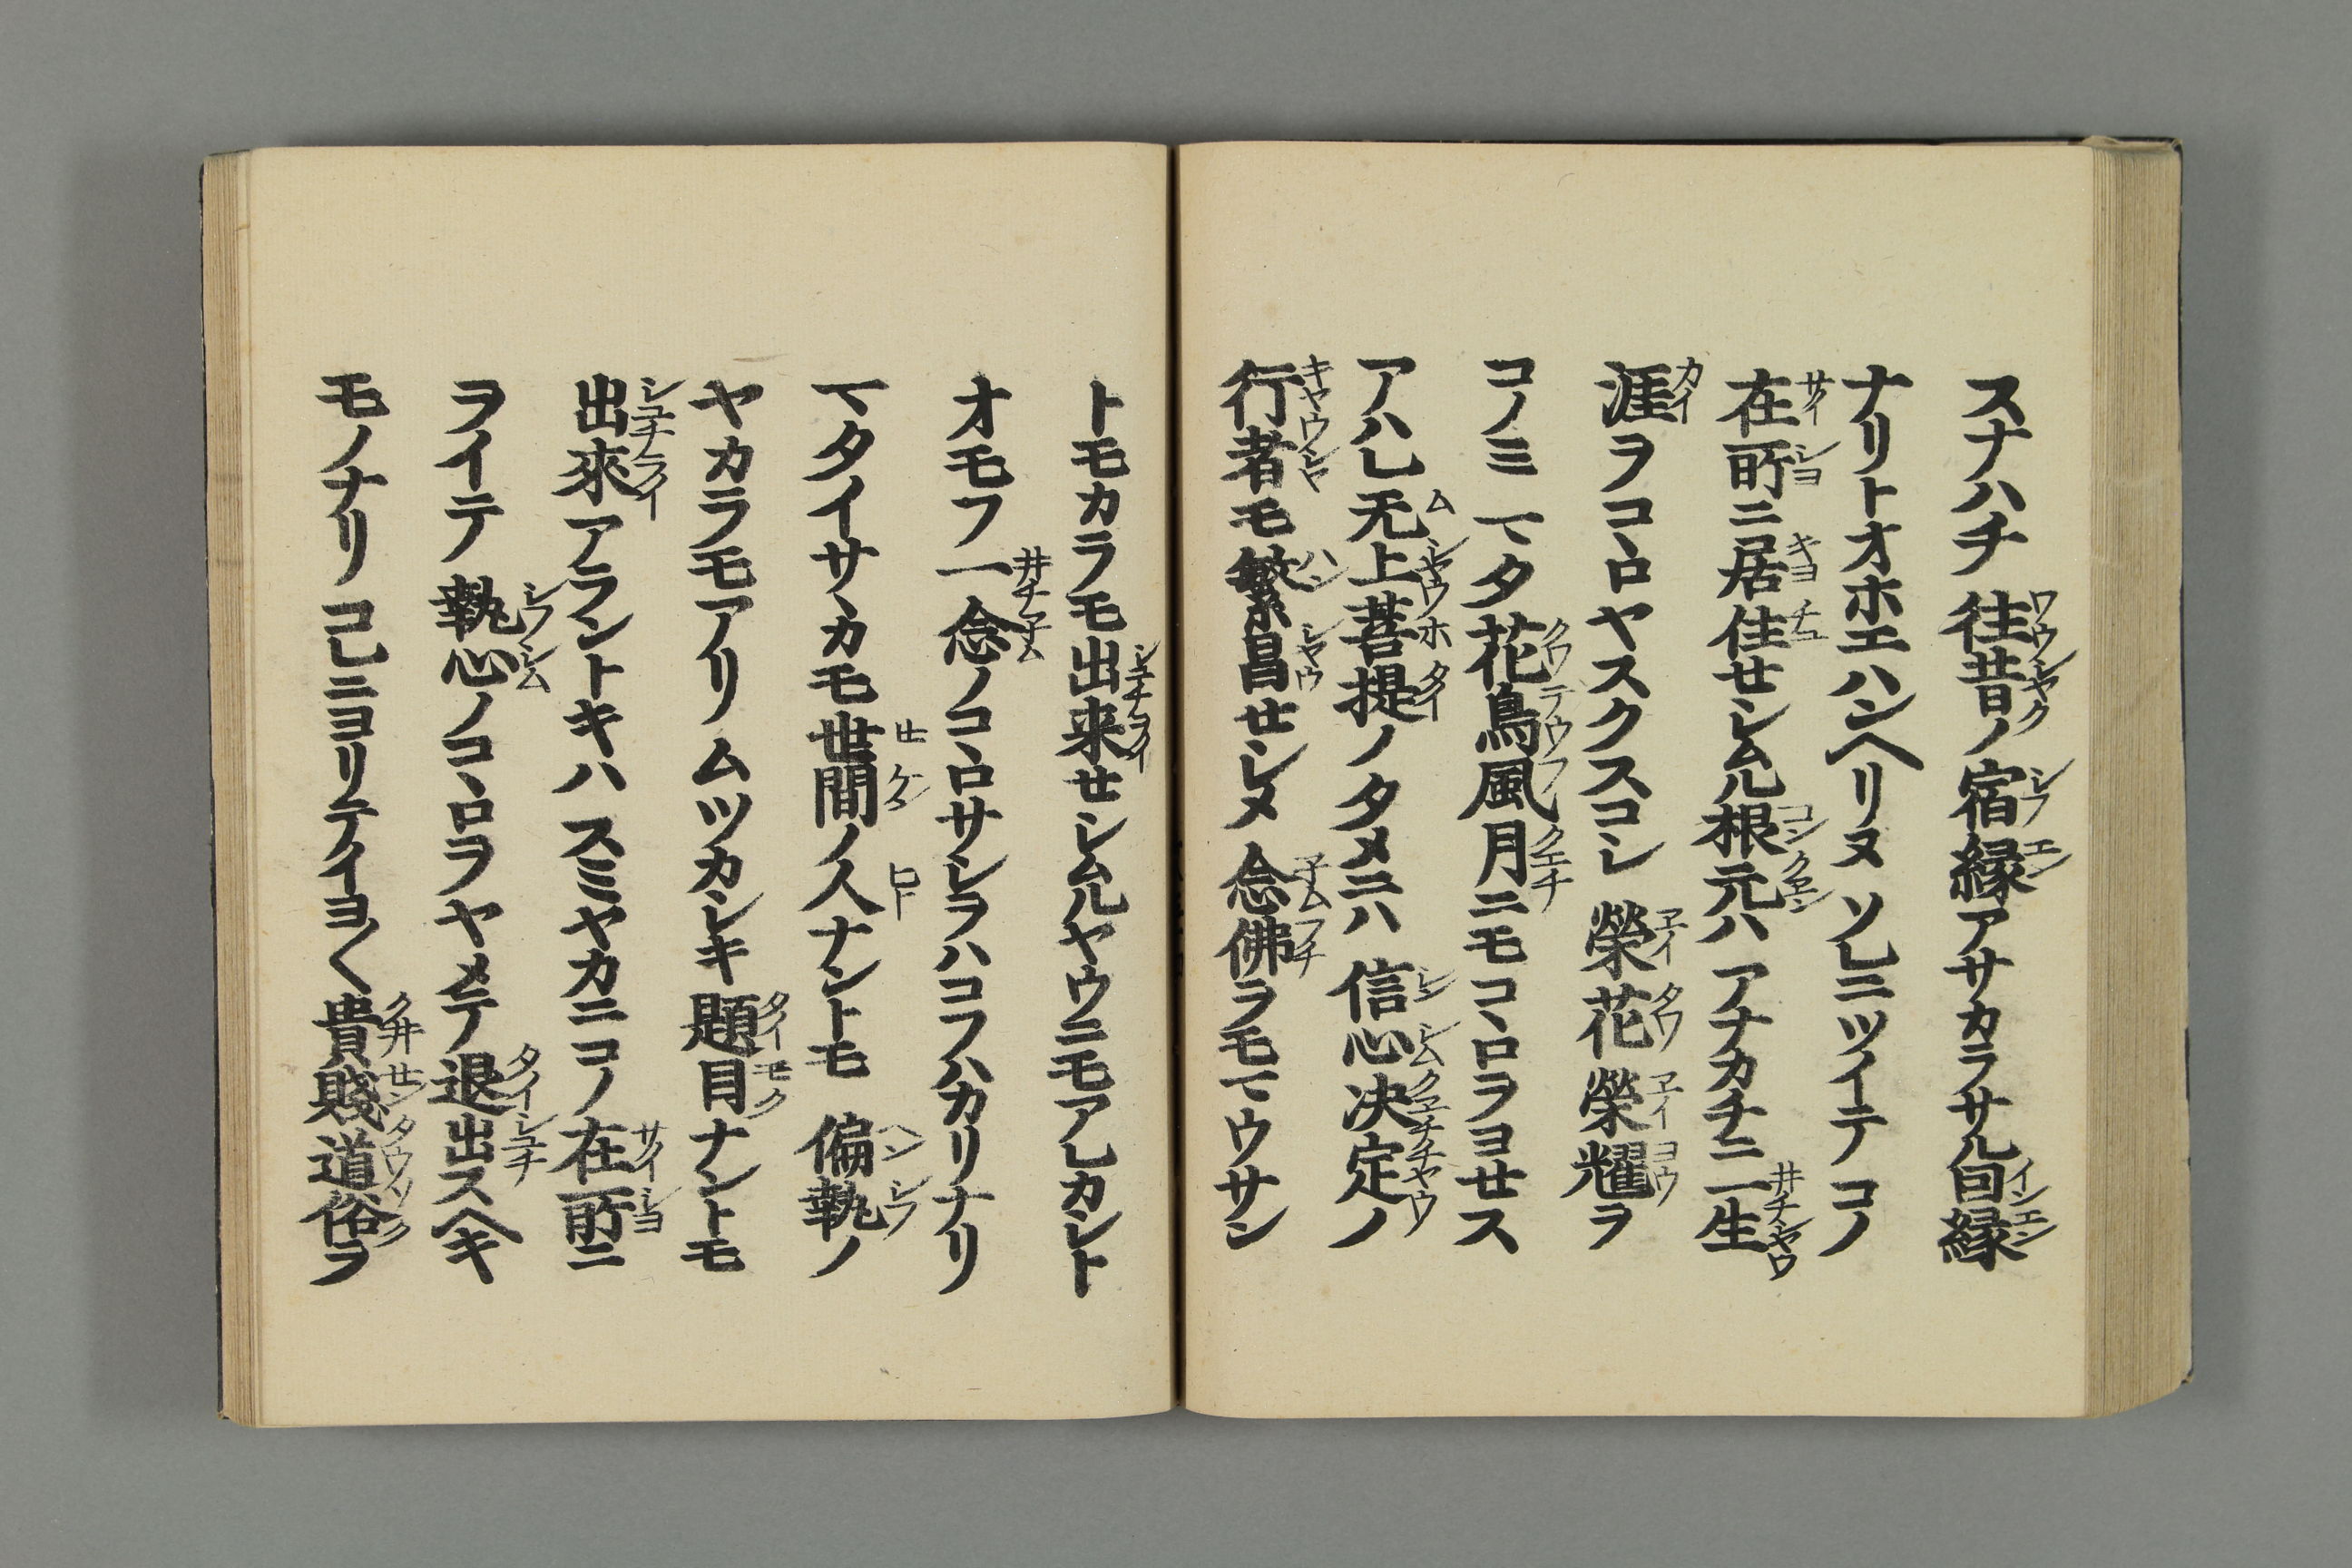 スナハチ往昔ノ宿縁アサカラサル因縁
ナリトオホエハンヘリヌソレニツイテコノ
在所ニ居住セシムル根元ハアナカチニ一生
涯ヲコヽロヤスクスコシ榮花榮耀ヲ
コノミマタ花鳥風月ニモコヽロヲヨセス
アハレ无上菩提ノタメニハ信心决定ノ
行者モ繁昌セシメ念佛ヲモマウサン
トモカラモ出来セシムルヤウニモアレカシト
オモフ一念ノコヽロサシヲハコフハカリナリ
マタイサヽカモ世間ノ人ナントモ偏執ノ
ヤカラモアリムツカシキ題目ナントモ
出來アラントキハスミヤカニコノ在所ニ
ヲイテ執心ノコヽロヲヤメテ退出スヘキ
モノナリコレニヨリテイヨ〱貴賤道俗ヲ